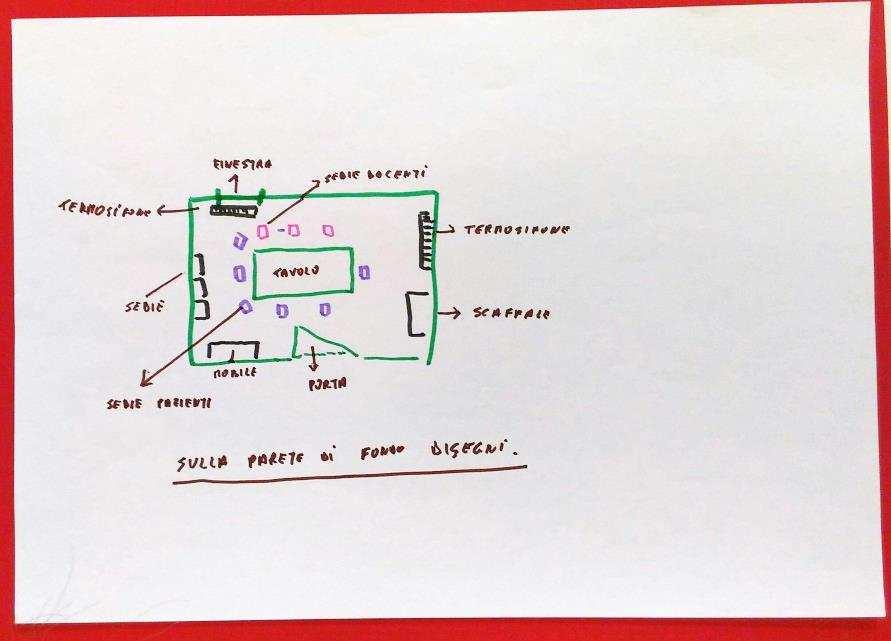 FINESTRA
SEDIE DOCENTI
TERMOSIFONE
TERMOSIFONE
TAVOLO
SEDIE
SCAFFALE
MOBILE
PORTA
SEDIE PAZIENTI
SULLA PARETE DI FONDO DISEGNI.